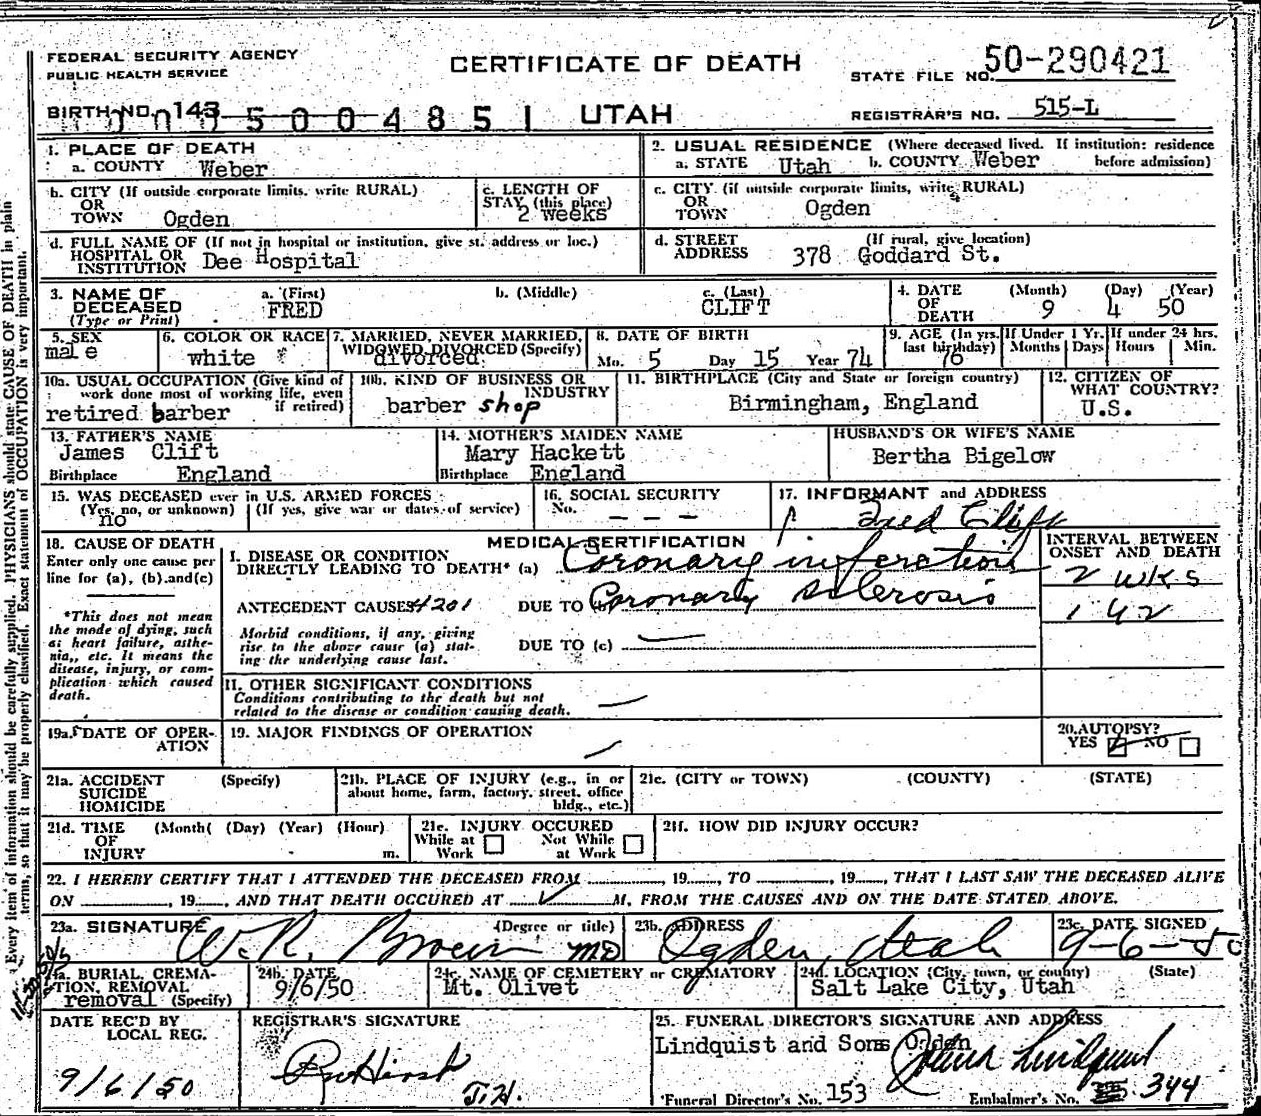 FEDERAL SECURITY AGENCY
PUBLIC HEALTH SERVICE
CERTIFICATE OF DEATH
STATE FILE NO. 50-290421
BIRTH NO. 143
5004851 UTAH
REGISTRAR'S NO. 515-L
1. PLACE OF DEATH
a. COUNTY Weber
2. USUAL RESIDENCE (Where deceased lived. If institution: residence before admission)
a. STATE Utah b. COUNTY Weber
b. CITY (If outside corporate limits, write RURAL)
OR
TOWN Ogden
c. LENGTH OF
STAY (this place)
2 weeks
c. CITY (if outside corporate limits, write RURAL)
OR
TOWN Ogden
d. FULL NAME OF (If not in hospital or institution, give st. address or loc.)
HOSPITAL OR
INSTITUTION Dee Hospital
d. STREET (If rural, give location)
ADDRESS 378 Goddard St.
3. NAME OF DECEASED (Type or Print)
a. (First) b. (Middle) c. (Last)
FRED CLIFT
4. DATE OF DEATH (Month) (Day) (Year)
9 4 50
5. SEX
male
6. COLOR OR RACE
white
7. MARRIED, NEVER MARRIED,
WIDOWED DIVORCED (Specify)
divorced
8. DATE OF BIRTH
Mo. 5 Day 15 Year 74
9. AGE (In yrs. last birthday)
76
If Under 1 Yr.
Months Days
If under 24 hrs.
Hours Min.
10a. USUAL OCCUPATION (Give kind of
work done most of working life, even
if retired)
retired barber
10b. KIND OF BUSINESS OR
INDUSTRY
barber shop
11. BIRTHPLACE (City and State or foreign country)
Birmingham, England
12. CITIZEN OF
WHAT COUNTRY?
U.S.
13. FATHER'S NAME
James Clift
Birthplace England
14. MOTHER'S MAIDEN NAME
Mary Hackett
Birthplace England
HUSBAND'S OR WIFE'S NAME
Bertha Bigelow
15. WAS DECEASED ever in U.S. ARMED FORCES
(Yes, no, or unknown) (If yes, give war or dates of service)
no
16. SOCIAL SECURITY
No. - - -
17. INFORMANT and ADDRESS
Fred Clift
18. CAUSE OF DEATH
Enter only one cause per
line for (a), (b).and(c)
*This does not mean
the mode of dying, such
as heart failure, asthe-
nia,, etc. It means the
disease, injury, or com-
plication which caused
death.
MEDICAL CERTIFICATION
I. DISEASE OR CONDITION
DIRECTLY LEADING TO DEATH* (a) Coronary infarction
ANTECEDENT CAUSES 4201 DUE TO (b) Coronary sclerosis
Morbid conditions, if any, giving
rise to the above cause (a) stat-
ing the underlying cause last.
DUE TO (c)
INTERVAL BETWEEN
ONSET AND DEATH
2 wks
II. OTHER SIGNIFICANT CONDITIONS
Conditions contributing to the death but not
related to the disease or condition causing death.
19a. DATE OF OPER-
ATION
19. MAJOR FINDINGS OF OPERATION
20. AUTOPSY?
YES NO
21a. ACCIDENT (Specify)
SUICIDE
HOMICIDE
21b. PLACE OF INJURY (e.g., in or
about home, farm, factory, street, office
bldg., etc.)
21c. (CITY or TOWN) (COUNTY) (STATE)
21d. TIME (Month( (Day) (Year) (Hour)
OF
INJURY m.
21e. INJURY OCCURED
While at Work Not While at Work
21f. HOW DID INJURY OCCUR?
22. I HEREBY CERTIFY THAT I ATTENDED THE DECEASED FROM ........, 19...., TO ........, 19...., THAT I LAST SAW THE DECEASED ALIVE
ON ........, 19...., AND THAT DEATH OCCURED AT ........M, FROM THE CAUSES AND ON THE DATE STATED ABOVE.
23a. SIGNATURE (Degree or title)
W. R. Brown MD
23b. ADDRESS
Ogden, Utah
23c. DATE SIGNED
9-6-50
24a. BURIAL, CREMA-
TION, REMOVAL
removal (Specify)
24b. DATE
9/6/50
24c. NAME OF CEMETERY or CREMATORY
Mt. Olivet
24d. LOCATION (City, town, or county) (State)
Salt Lake City, Utah
DATE REC'D BY
LOCAL REG.
9/6/50
REGISTRAR'S SIGNATURE
J.H.
25. FUNERAL DIRECTOR'S SIGNATURE AND ADDRESS
Lindquist and Sons Ogden
Funeral Director's No. 153
Embalmer's No. 344
Every item of information should be carefully supplied. PHYSICIANS should state CAUSE OF DEATH in plain
terms, so that it may be properly classified. Exact statement of OCCUPATION is very important.